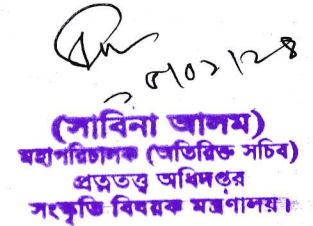 (সাবিনা আলম)
মহাপরিচালক (অতিরিক্ত সচিব)
প্রত্নতত্ত্ব অধিদপ্তর
সংস্কৃতি বিষয়ক মন্ত্রণালয়।